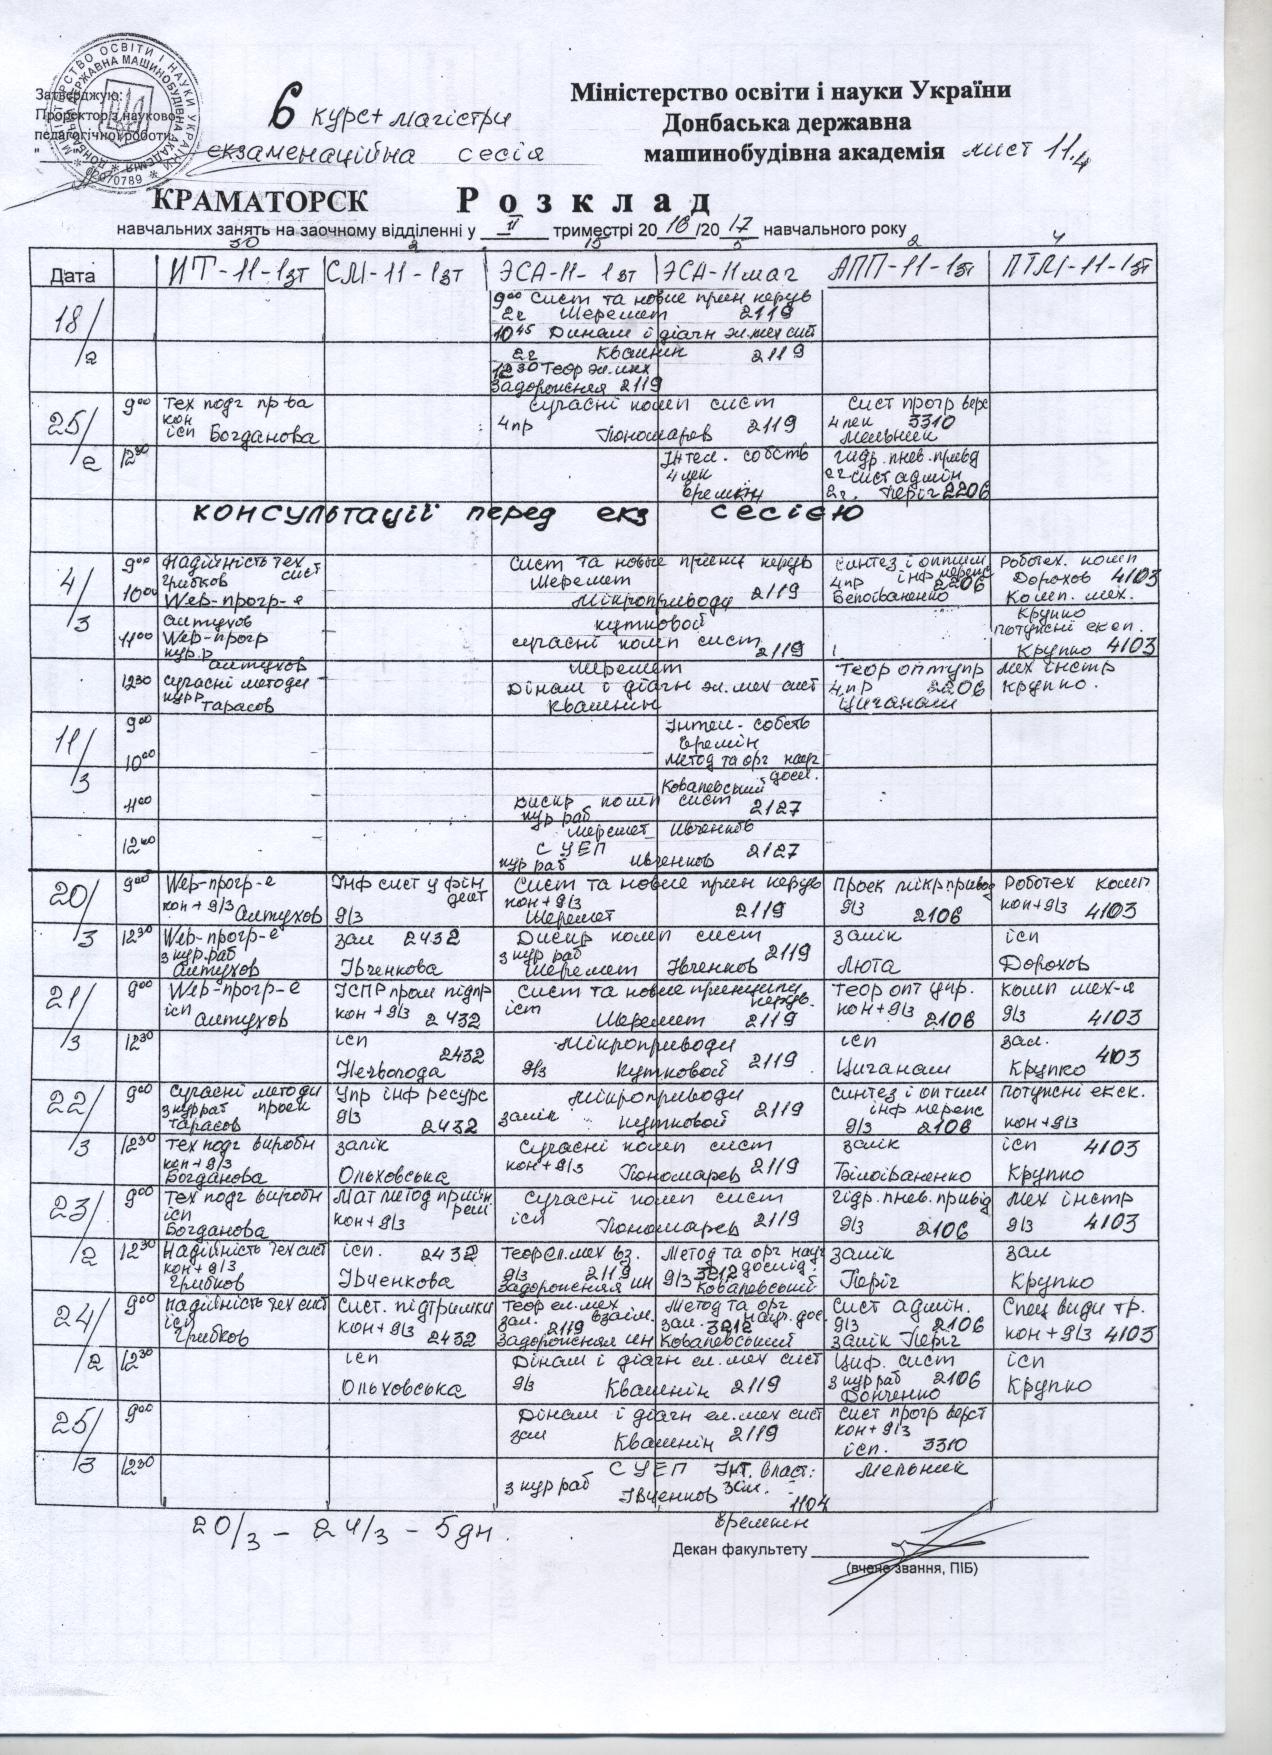 Затверджую:
Проректор з науково-
педагогічної роботи
МІНІСТЕРСТВО ОСВІТИ І НАУКИ УКРАЇНИ
ДОНБАСЬКА ДЕРЖАВНА МАШИНОБУДІВНА АКАДЕМІЯ
02070789
6 курс + магістри
екзаменаційна сесія
Міністерство освіти і науки України
Донбаська державна
машинобудівна академія
лист 11.4
КРАМАТОРСК Розклад
навчальних занять на заочному відділенні у II триместрі 2016/2017 навчального року
30 2 15 5 2 4
Дата ИТ-11-1зт СМ-11-1зт ЭСА-11-1зт ЭСА-11маг АПП-11-1зт ПТМ-11-1зт
18/2
9⁰⁰ Сист та новые прин керув
2г Шеремет 2119
10⁴⁵ Динам і діагн эл.мех сист
2г Квашнин 2119
12³⁰ Теор эл.мех
Задорожняя 2119
25/2
9⁰⁰ Тех подг пр-ва
кон
ісп Богданова
Сучасні комп сист
4пр Пономарев 2119
Сист прогр верс
4лек 3310
Мельник
12³⁰
Інтел. собств
4лек
Еремкін
гидр.пнев.привд
2г сист адмін
2г. Періг 2206
консультації перед екз сесією
4/3
9⁰⁰ Надійність тех сист
Грибков
10⁰⁰ Web-прогр-е
Алтухов
11⁰⁰ Web-прогр
кур.р Алтухов
12³⁰ Сучасні методи
курр Тарасов
Сист та новые принц керув
Шеремет
Мікроприводу 2119
Кутковой
Сучасні комп сист 2119
Шеремет
Дінам і діагн эл.мех сист
Квашнин
Синтез і оптим
4пр інф мереж 2206
Белоіваненко
Теор опт упр
4пр 2206
Циганаш
Роботех. комп
Дорохов 4103
Комп. мех.
Крупко
Потужні екск.
Крупко 4103
мех інстр
Крупко.
11/3
9⁰⁰
10⁰⁰
11⁰⁰
12⁴⁰
Інтел. собств
Еремкін
Метод та орг наук
досл.
Ковалевський
Дискр комп сист
кур раб 2127
Шеремет Ивченков
СУЕП 2127
кур раб Ивченков
20/3
9⁰⁰ Web-прогр-е
кон + д/з Алтухов
Інф сист у фін
деят
д/з
Сист та новые прин керув
кон + д/з
Шеремет 2119
Проек мікрпривод
д/з 2106
Роботех комп
кон+д/з 4103
12³⁰ Web-прогр-е
з кур.раб
Алтухов
зал 2432
Івченкова
Дискр комп сист
з кур раб
Шеремет Івченков 2119
залік
Люта
ісп
Дорохов
21/3
9⁰⁰ Web-прогр-е
ісп Алтухов
ІСПР пром підпр
кон + д/з 2432
Сист та новые принципи
керув.
іспт Шеремет 2119
Теор опт упр.
кон + д/з 2106
комп мех-я
д/з 4103
12³⁰
ісп
2432
Нечволода
Мікроприводи
д/з Кутковой 2119
ісп
Циганаш
зал.
4103
Крупко
22/3
9⁰⁰ Сучасні методи
з кур раб проек
Тарасов
Упр інф ресурс
д/з 2432
Мікроприводи
залік Кутковой 2119
Синтез і оптим
інф мереж
д/з 2106
Потужні екск.
кон + д/з
12³⁰ Тех подг виробн
кон + д/з
Богданова
залік
Ольховська
Сучасні комп сист
кон + д/з Пономарев 2119
залік
Білоіваненко
ісп 4103
Крупко
23/2
9⁰⁰ Тех подг виробн
ісп
Богданова
Мат метод прийн
реш
кон + д/з
Сучасні комп сист
ісп Пономарев 2119
Гідр.пнев.привід
д/з 2106
Мех інстр
д/з 4103
12³⁰ Надійність тех сист
кон + д/з
Грибков
ісп. 2432
Івченкова
Теор ел.мех вз.
д/з 2119
Задорожняя ИН
Метод та орг наук
дослід.
д/з 3212 Ковалевський
залік
Періг
зал
Крупко
24/2
9⁰⁰ Надійність тех сист
ісп
Грибков
Сист. підтримки
кон + д/з 2432
Теор ел.мех
взаім.
зал. 2119
Задорожняя ИН
Метод та орг
наук. дос.
зал. 3212
Ковалевський
Сист адмін.
д/з 2106
залік Періг
Спец види тр.
кон + д/з 4103
12³⁰
ісп
Ольховська
Дінам і діагн ел.мех сист
д/з Квашнін 2119
Циф. сист
з кур раб 2106
Донченко
ісп
Крупко
25/3
9⁰⁰
Дінам і діагн ел.мех сист
зал Квашнін 2119
Сист прогр верст
кон + д/з
ісп. 3310
12³⁰
СУЕП
з кур раб Івченков
Інт. власт.
зал. 1104
Еремкін
Мельник
20/3 – 24/3 – 5 дн.
Декан факультету
(вчене звання, ПІБ)